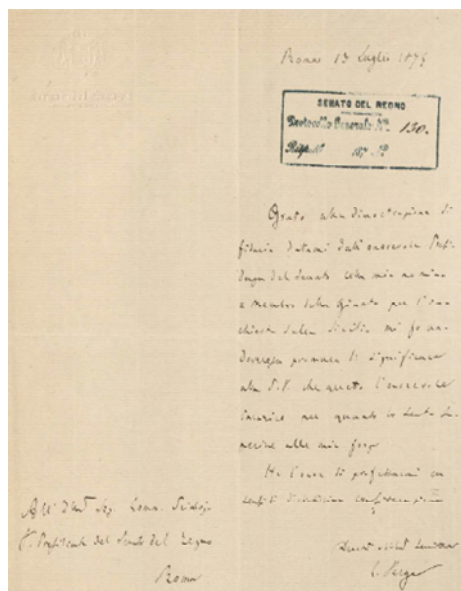 Roma 13 Luglio 1875
SENATO DEL REGNO
Protocollo Generale N. 130.
187 N.
Grato alla dimostrazione di
fiducia datami dall'onorevole Presi
denza del Senato colla mia nomina
a Membro della Giunta per l'in
chiesta sulla Sicilia mi fo un
doveroso premura di significare
alla S.V. che accetto l'onorevole
incarico per quanto io senta su
periore alle mie forze
Ho l'onore di professarmi con
sensi di distintissima considerazione
All' Sig. Comm.
Presidente del Senato del Regno
Roma
C. Verga